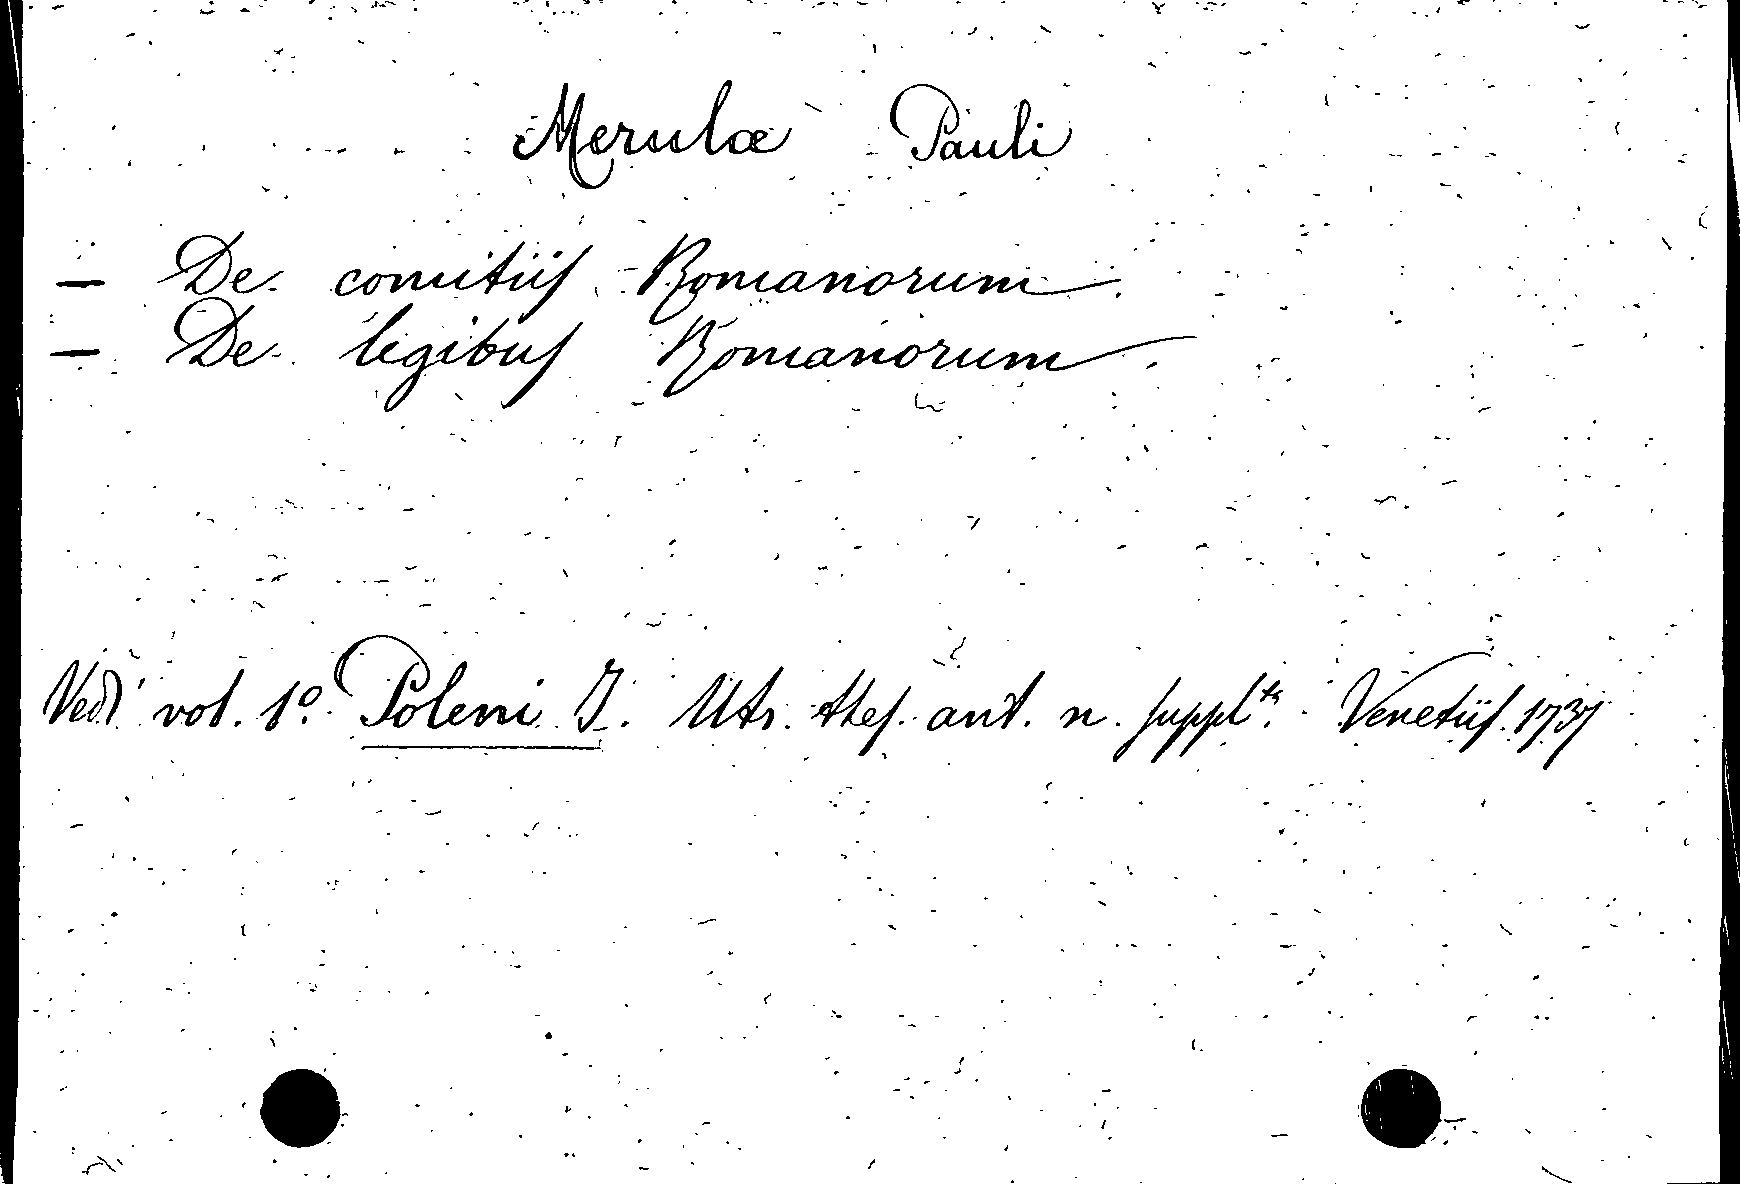 Merulæ Pauli
— De comitiis Romanorum.
— De legibus Romanorum.
Vedi vol. 1º. Poleni I. Utr. thes. ant. n. suppl.ta Venetiis 1737